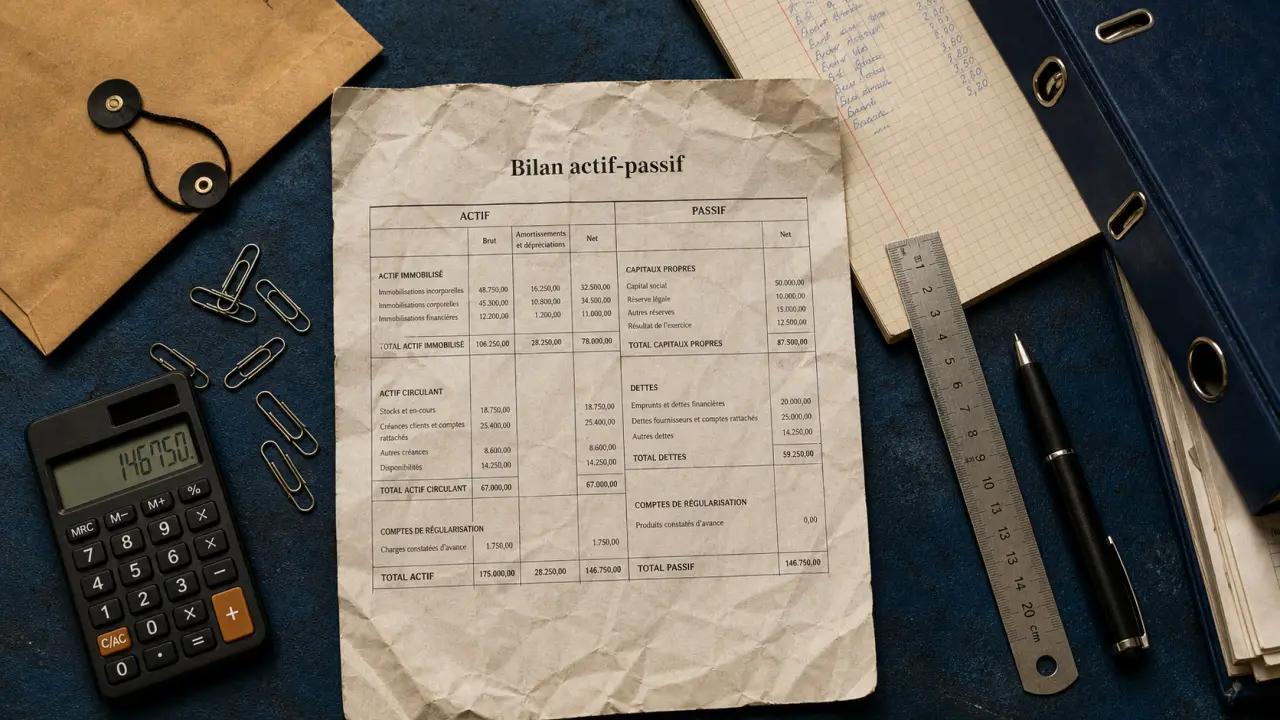 Bilan actif-passif
ACTIF PASSIF
Brut Amortissements et dépréciations Net Net
ACTIF IMMOBILISÉ CAPITAUX PROPRES
Immobilisations incorporelles 48.750,00 16.250,00 32.500,00 Capital social 50.000,00
Immobilisations corporelles 45.300,00 10.800,00 34.500,00 Réserve légale 10.000,00
Immobilisations financières 12.200,00 1.200,00 11.000,00 Autres réserves 15.000,00
Résultat de l'exercice 12.500,00
TOTAL ACTIF IMMOBILISÉ 106.250,00 28.250,00 78.000,00 TOTAL CAPITAUX PROPRES 87.500,00
ACTIF CIRCULANT DETTES
Stocks et en-cours 18.750,00 18.750,00 Emprunts et dettes financières 20.000,00
Créances clients et comptes rattachés 25.400,00 25.400,00 Dettes fournisseurs et comptes rattachés 25.000,00
Autres dettes 14.250,00
Autres créances 8.600,00 8.600,00 TOTAL DETTES 59.250,00
Disponibilités 14.250,00 14.250,00
TOTAL ACTIF CIRCULANT 67.000,00 67.000,00
COMPTES DE RÉGULARISATION COMPTES DE RÉGULARISATION
Charges constatées d'avance 1.750,00 1.750,00 Produits constatés d'avance 0,00
TOTAL ACTIF 175.000,00 28.250,00 146.750,00 TOTAL PASSIF 146.750,00
146750.
MRC M− M+ %
7 8 9 X
4 5 6 X
1 2 3 −
C/AC 0 X +
0 . =
1
2
3
4
5
6
7
8
9
10
13
13
14
20 cm